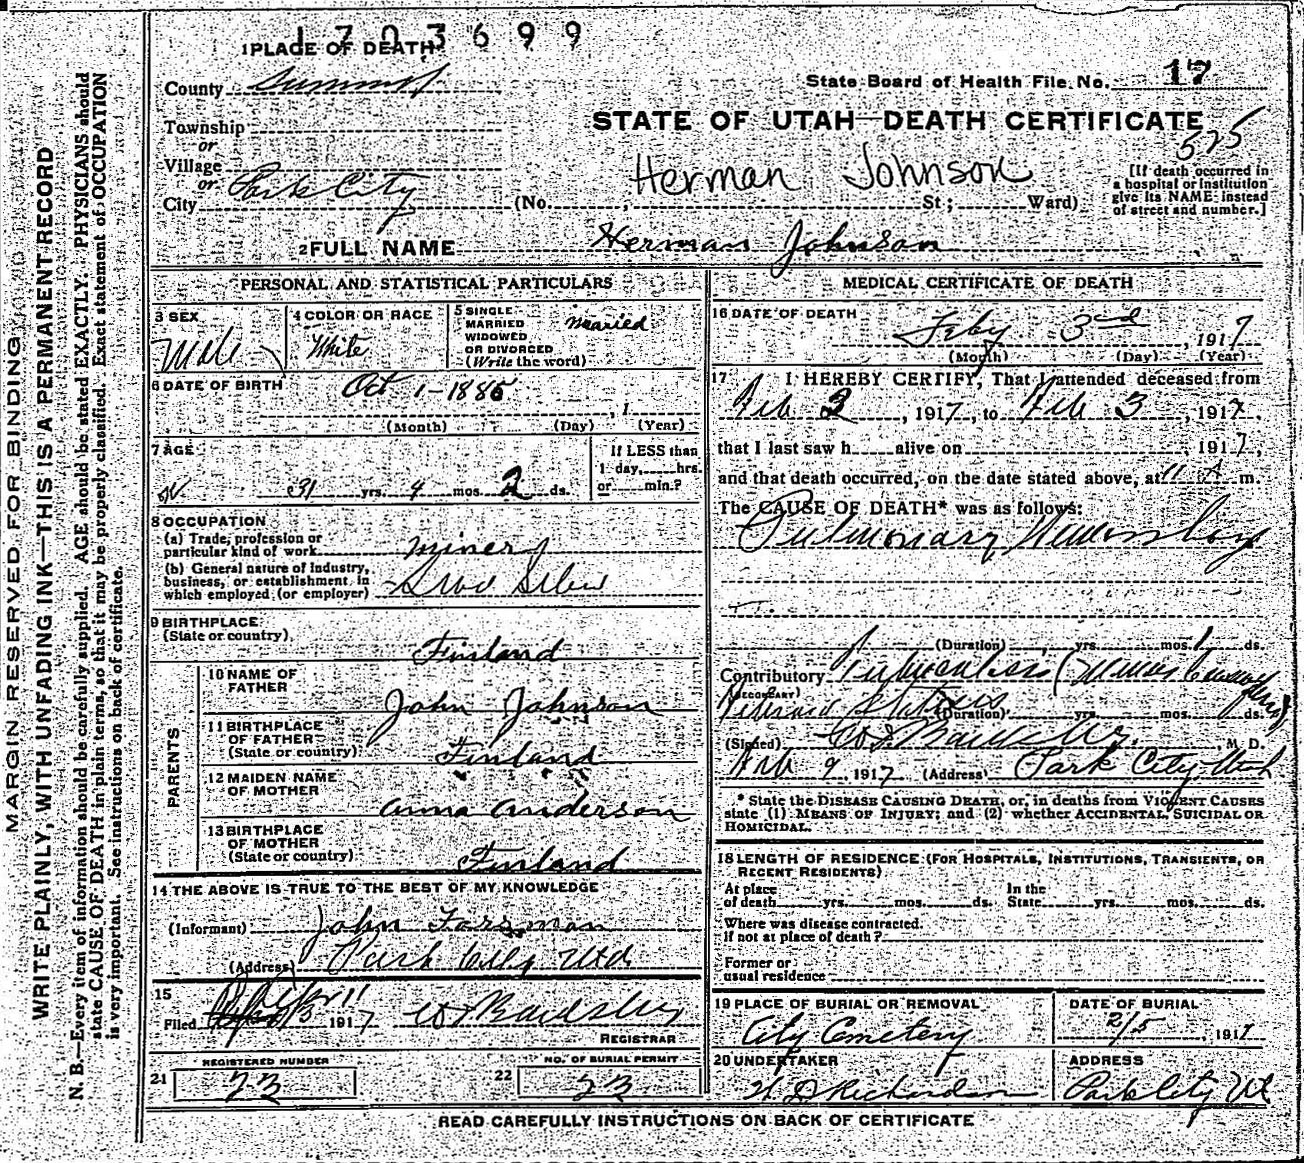 1703699
1 PLACE OF DEATH
County Summit
State Board of Health File No. 17
Township
or
Village
or
City Park City
STATE OF UTAH—DEATH CERTIFICATE
525
Herman Johnson
(No. , St.; Ward)
[If death occurred in
a hospital or institution
give its NAME instead
of street and number.]
2 FULL NAME Herman Johnson
PERSONAL AND STATISTICAL PARTICULARS
3 SEX
Male
4 COLOR OR RACE
White
5 SINGLE
MARRIED
WIDOWED
OR DIVORCED
(Write the word)
Married
6 DATE OF BIRTH
Oct 1-1885
, 1
(Month) (Day) (Year)
7 AGE
31 yrs. 4 mos. 2 ds.
If LESS than
1 day, hrs.
or min.?
8 OCCUPATION
(a) Trade, profession or
particular kind of work miner
(b) General nature of Industry,
business, or establishment in
which employed (or employer)
9 BIRTHPLACE
(State or country)
Finland
PARENTS
10 NAME OF
FATHER
John Johnson
11 BIRTHPLACE
OF FATHER
(State or country)
Finland
12 MAIDEN NAME
OF MOTHER
Anna Anderson
13 BIRTHPLACE
OF MOTHER
(State or country)
Finland
14 THE ABOVE IS TRUE TO THE BEST OF MY KNOWLEDGE
(Informant) John Forsman
(Address) Park City Utd
15
Filed 1917
REGISTRAR
REGISTERED NUMBER
21 23
NO. OF BURIAL PERMIT
22 23
MEDICAL CERTIFICATE OF DEATH
16 DATE OF DEATH
Feby 3rd , 1917
(Month) (Day) (Year)
17 I HEREBY CERTIFY, That I attended deceased from
Feb 3 , 1917, to Feb 3 , 1917,
that I last saw h alive on 1917,
and that death occurred, on the date stated above, at 11 A m.
The CAUSE OF DEATH* was as follows:
Pulmonary
(Duration) yrs. mos. 1 ds.
Contributory Tuberculosis
(SECONDARY)
(Duration) yrs. mos. ds.
(Signed) , M. D.
Feb 9, 1917 (Address) Park City Utah
* State the DISEASE CAUSING DEATH, or, in deaths from VIOLENT CAUSES
state (1) MEANS OF INJURY; and (2) whether ACCIDENTAL, SUICIDAL OR
HOMICIDAL.
18 LENGTH OF RESIDENCE (FOR HOSPITALS, INSTITUTIONS, TRANSIENTS, OR
RECENT RESIDENTS)
At place
of death yrs. mos. ds.
In the
State yrs. mos. ds.
Where was disease contracted.
If not at place of death?
Former or
usual residence
19 PLACE OF BURIAL OR REMOVAL
City Cemetery
DATE OF BURIAL
2/5 1917
20 UNDERTAKER
Richardson
ADDRESS
Park City Ut
READ CAREFULLY INSTRUCTIONS ON BACK OF CERTIFICATE
MARGIN RESERVED FOR BINDING
WRITE PLAINLY, WITH UNFADING INK—THIS IS A PERMANENT RECORD
N. B.—Every item of information should be carefully supplied. AGE should be stated EXACTLY. PHYSICIANS should
state CAUSE OF DEATH in plain terms, so that it may be properly classified. Exact statement of OCCUPATION
is very important. See instructions on back of certificate.